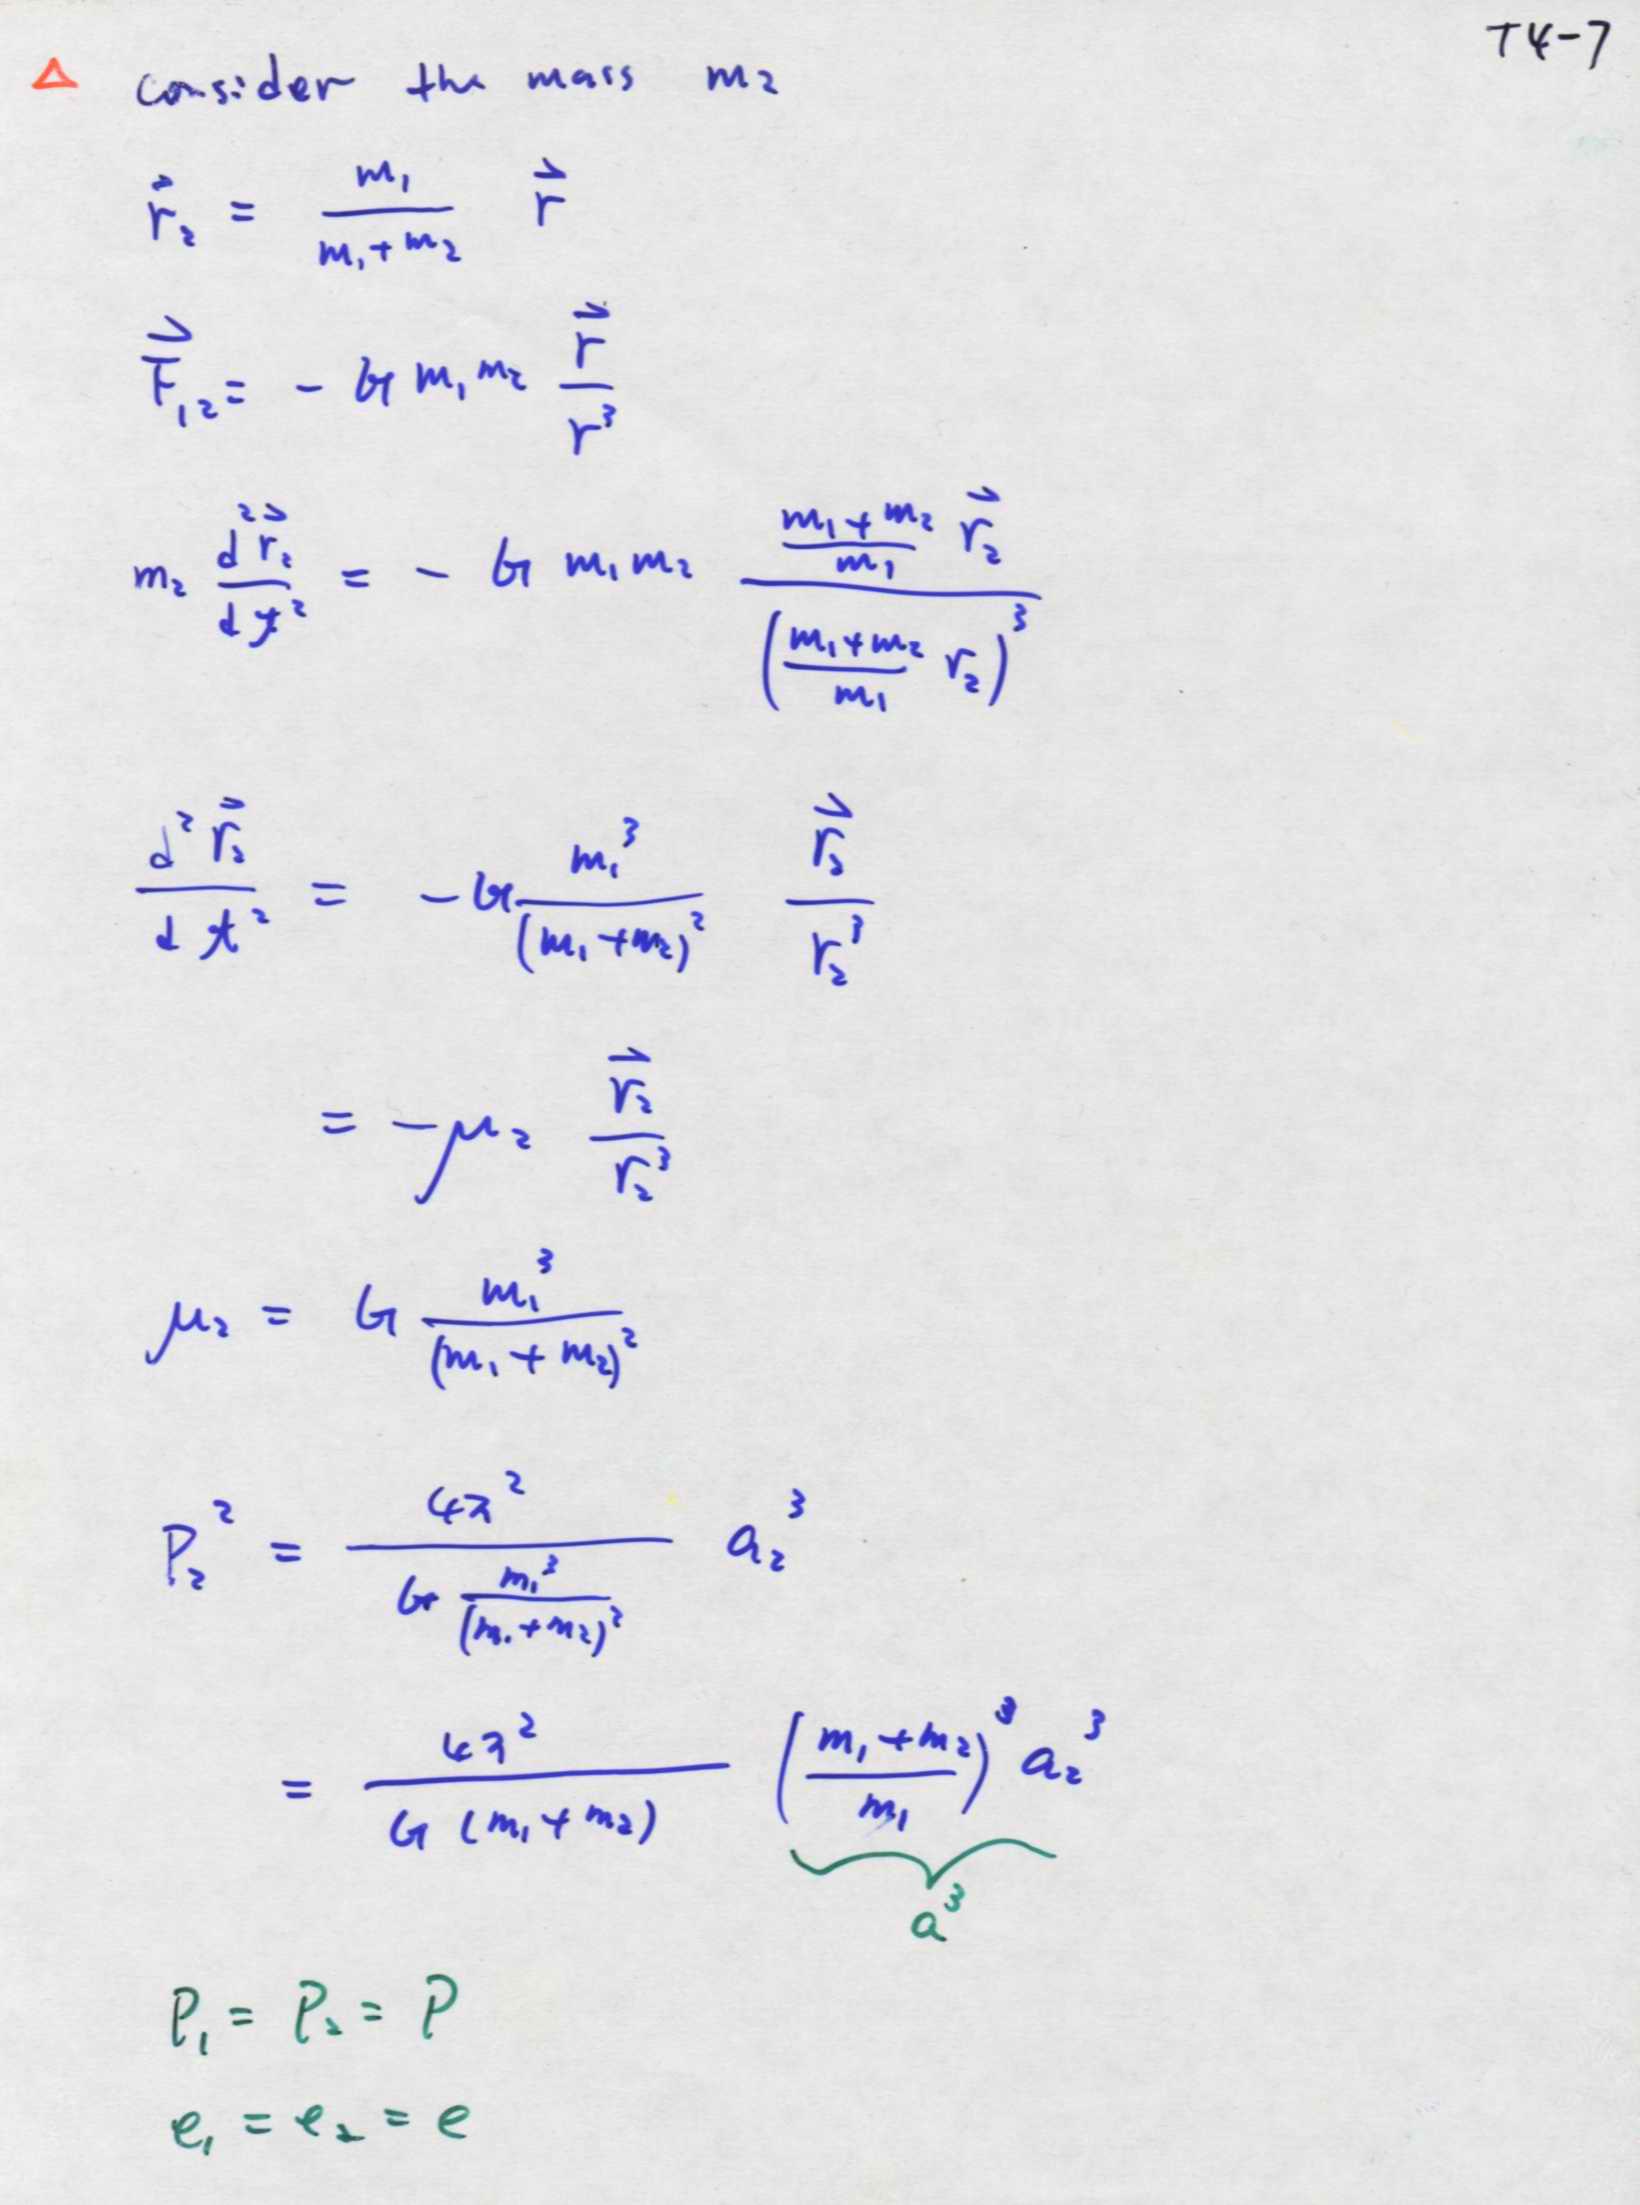 T4-7
△ consider the mass m₂
r⃗₂ = m₁/(m₁+m₂) r⃗
F⃗₁₂ = - G m₁ m₂ r⃗/r³
m₂ d²r⃗₂/dt² = - G m₁ m₂ ((m₁+m₂)/m₁ r⃗₂)/((m₁+m₂)/m₁ r₂)³
d²r⃗₂/dt² = -G m₁³/(m₁+m₂)² r⃗₂/r₂³
= -μ₂ r⃗₂/r₂³
μ₂ = G m₁³/(m₁+m₂)²
P₂² = 4π²/(G m₁³/(m₁+m₂)²) a₂³
= 4π²/(G (m₁+m₂)) ((m₁+m₂)/m₁)³ a₂³
a³
P₁ = P₂ = P
e₁ = e₂ = e